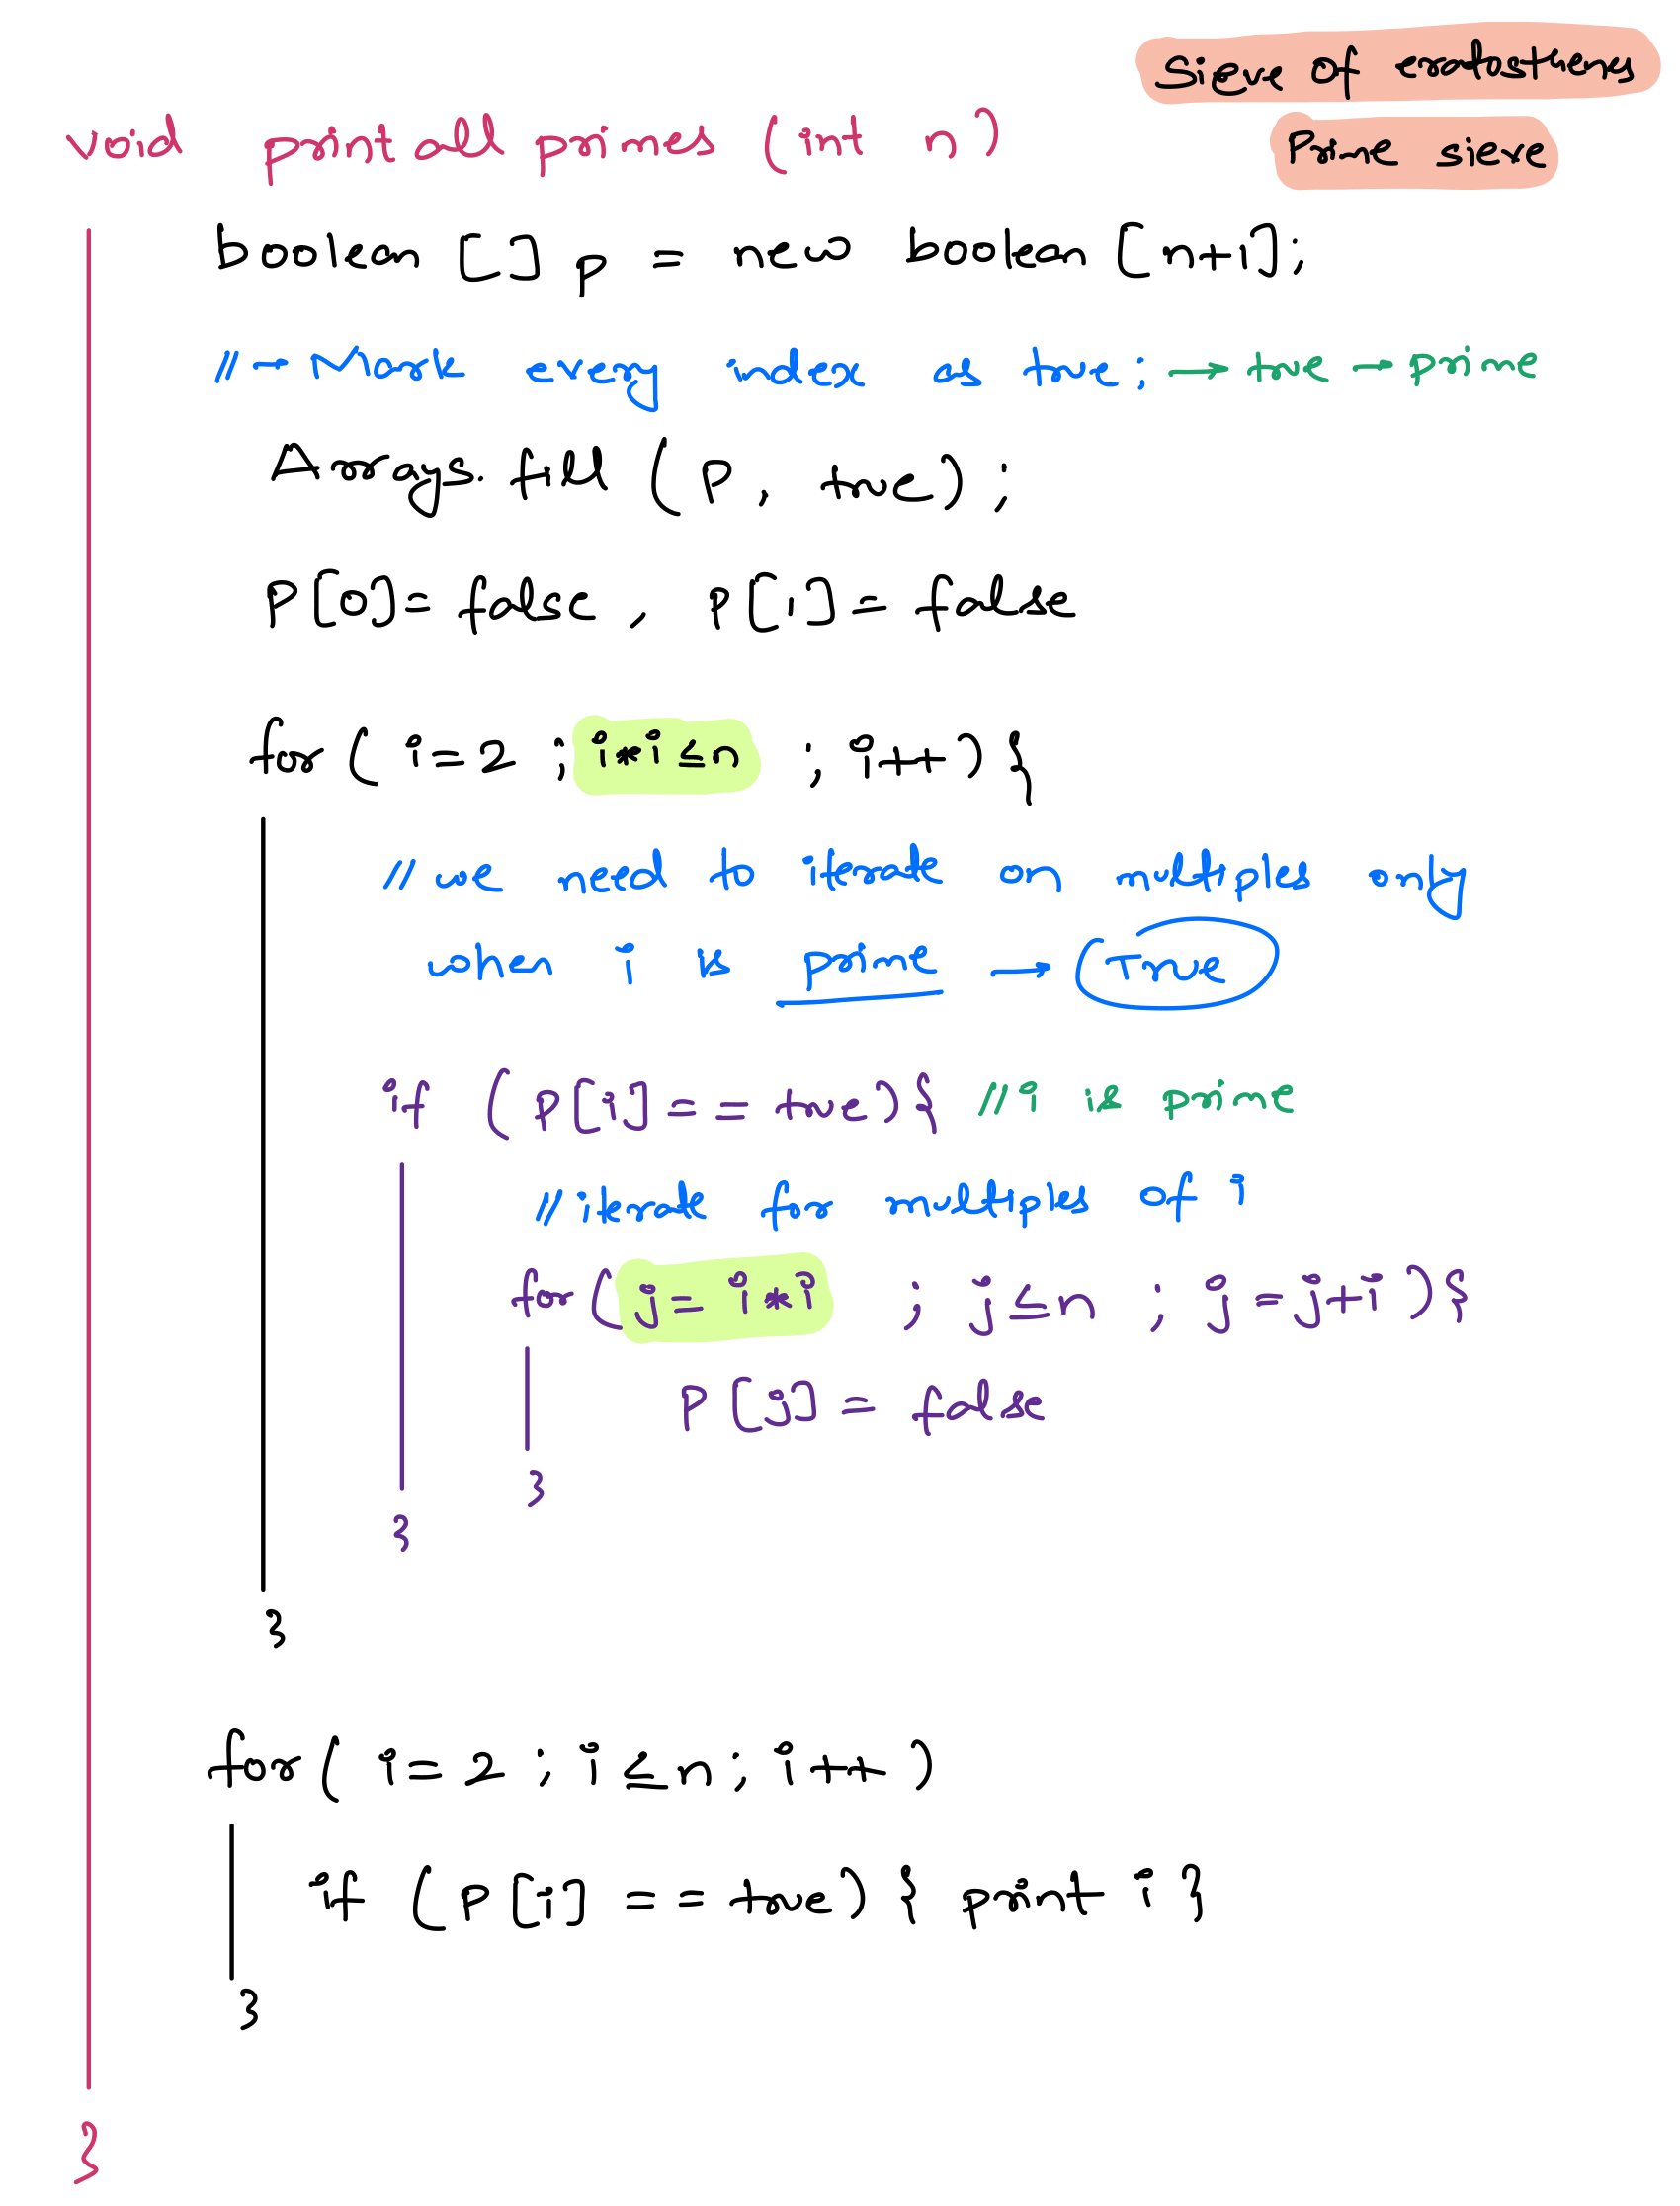 Sieve of eratosthenes
Prime sieve
void print all primes (int n)
boolean [] p = new boolean [n+1];
// → Mark every index as true; → true → prime
Arrays. fill (P, true);
P[0]= false , P[1]= false
for ( i=2 ; i*i≤n ; i++){
// we need to iterate on multiples only
when i is prime → True
if (P[i]== true){ //i is prime
//iterate for multiples of i
for (j= i*i ; j≤n ; j=j+i){
P[j] = false
}
}
}
for( i=2 ; i≤n; i++)
if (P[i] == true) { print i}
}
}